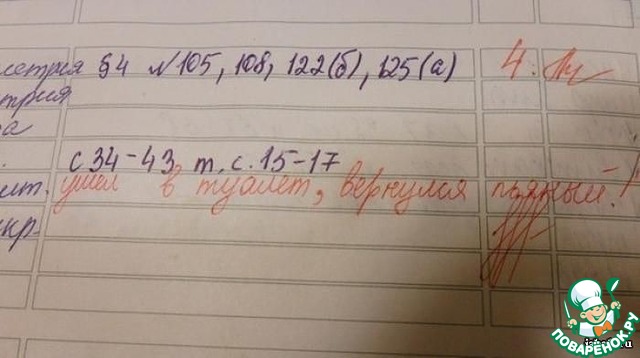 метрия §4 №105, 108, 122(б), 125(а) 4.
трия
а
с 34-43 т. с. 15-17
ушел в туалет, вернулся пьяный!
ПОВАРЁНОК.РУ